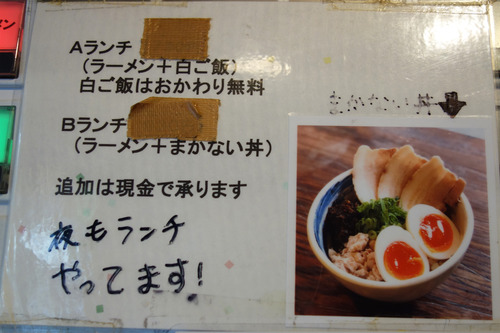 Aランチ
(ラーメン+白ご飯)
白ご飯はおかわり無料
まかない丼
Bランチ
(ラーメン+まかない丼)
追加は現金で承ります
夜もランチ
やってます!